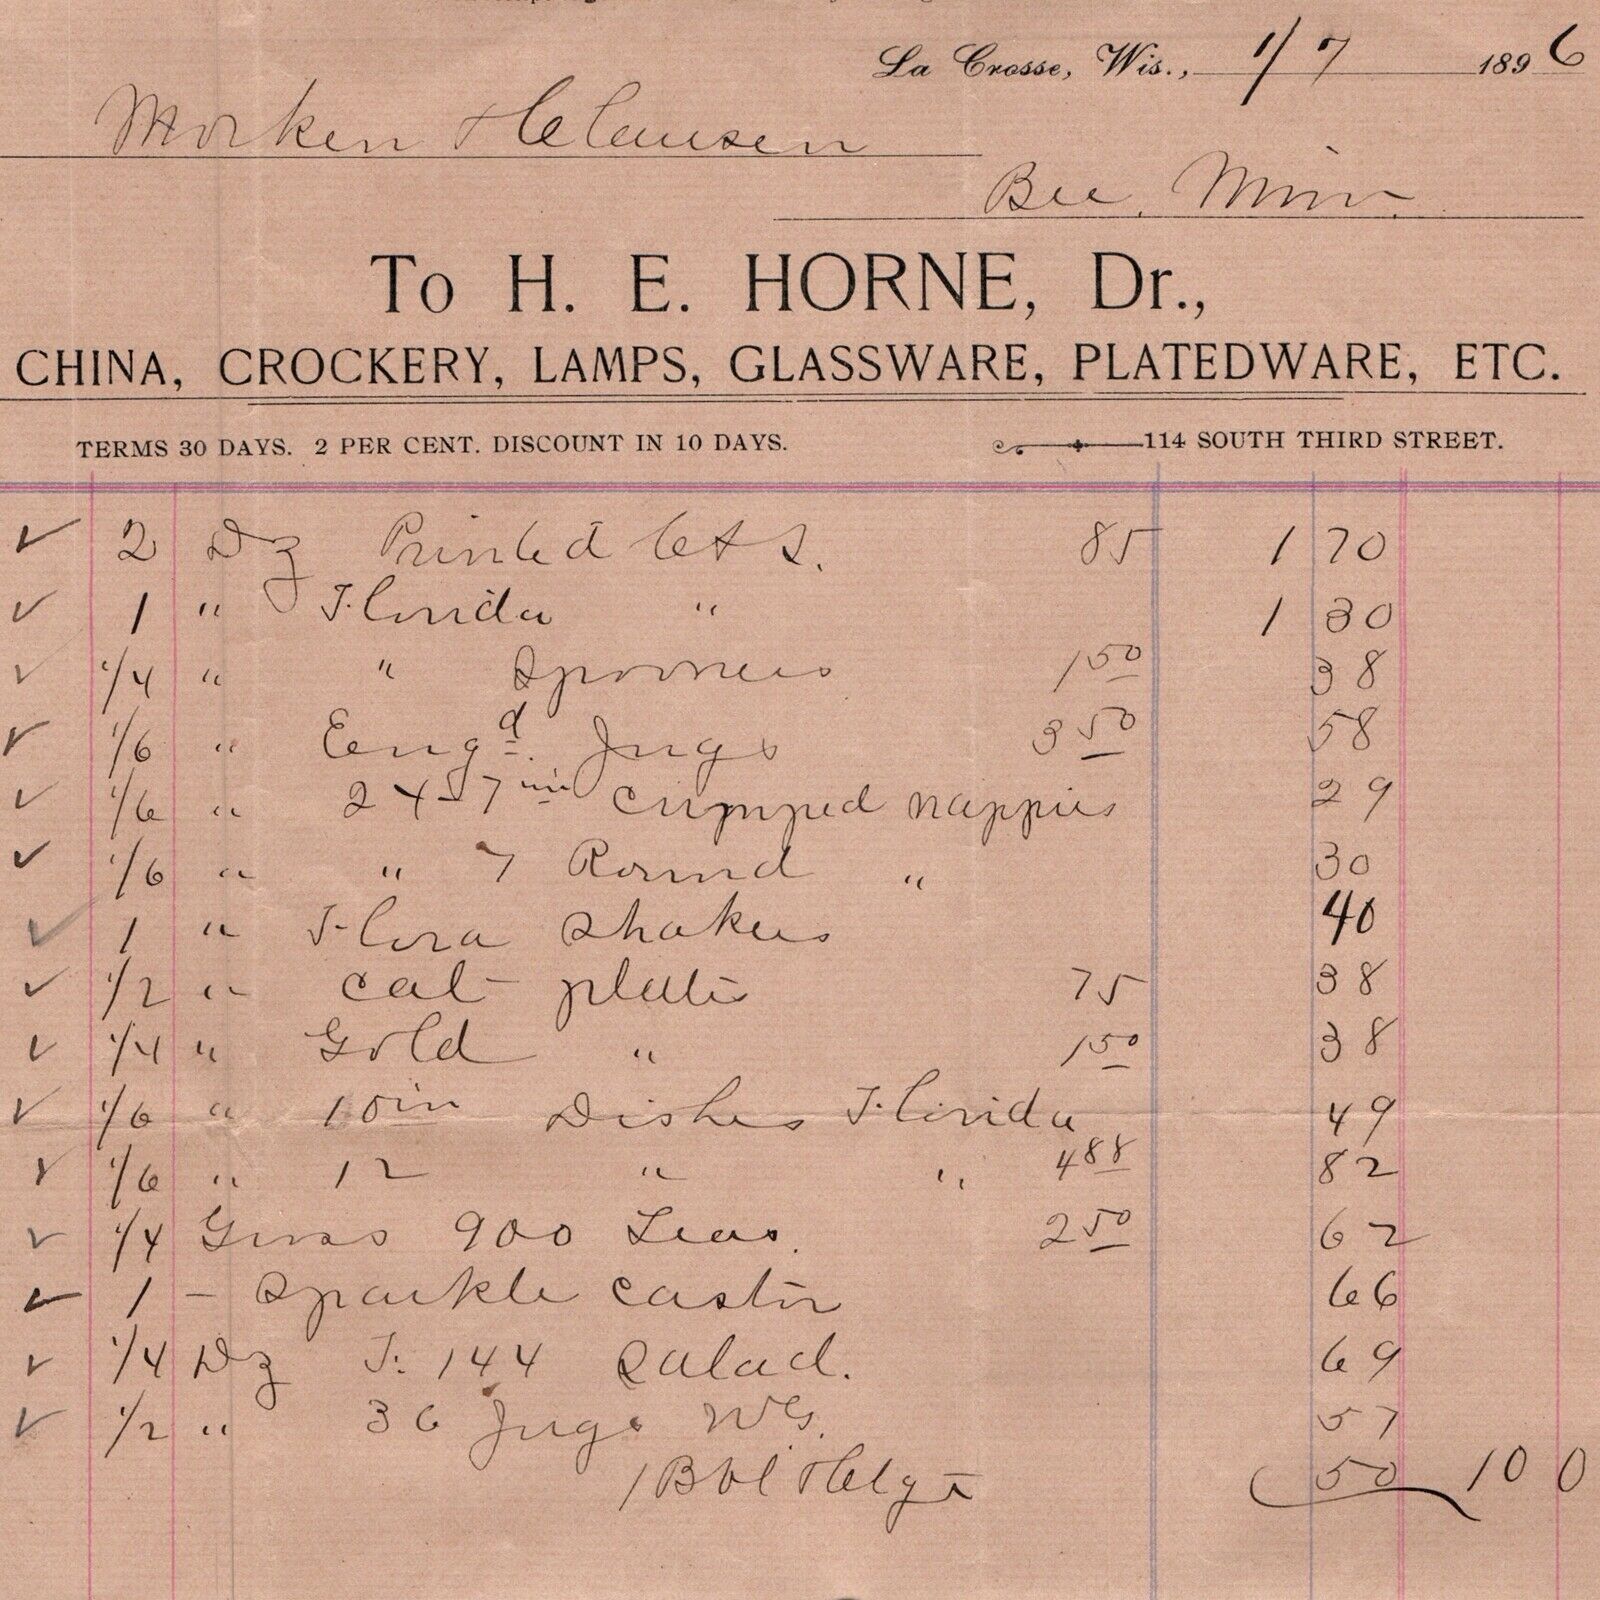 La Crosse, Wis., 1/7 1896
Morken & Clausen
Bee, Minn.
To H. E. HORNE, Dr.,
CHINA, CROCKERY, LAMPS, GLASSWARE, PLATEDWARE, ETC.
TERMS 30 DAYS. 2 PER CENT. DISCOUNT IN 10 DAYS. 114 SOUTH THIRD STREET.
✓ 2 Dz Printed C&S. 85 1 70
✓ 1 " Florida " 1 30
✓ 1/4 " " Spooners 1 50 38
✓ 1/6 " Eengd Jugs 3 50 58
✓ 1/6 " 24-7 in Crimped nappies 29
✓ 1/6 " " 7 Round " 30
✓ 1 " Flora Shakers 40
✓ 1/2 " cat plates 75 38
✓ 1/4 " Gold " 1 50 38
✓ 1/6 " 10in Dishes Florida 49
✓ 1/6 " 12 " " 4 88 82
✓ 1/4 Gross 900 Teas. 2 50 62
✓ 1 - Sparkle castor 66
✓ 1/4 Dz F. 144 Salad. 69
✓ 1/2 " 36 Jugs 57
1 Bbl 50 10 0